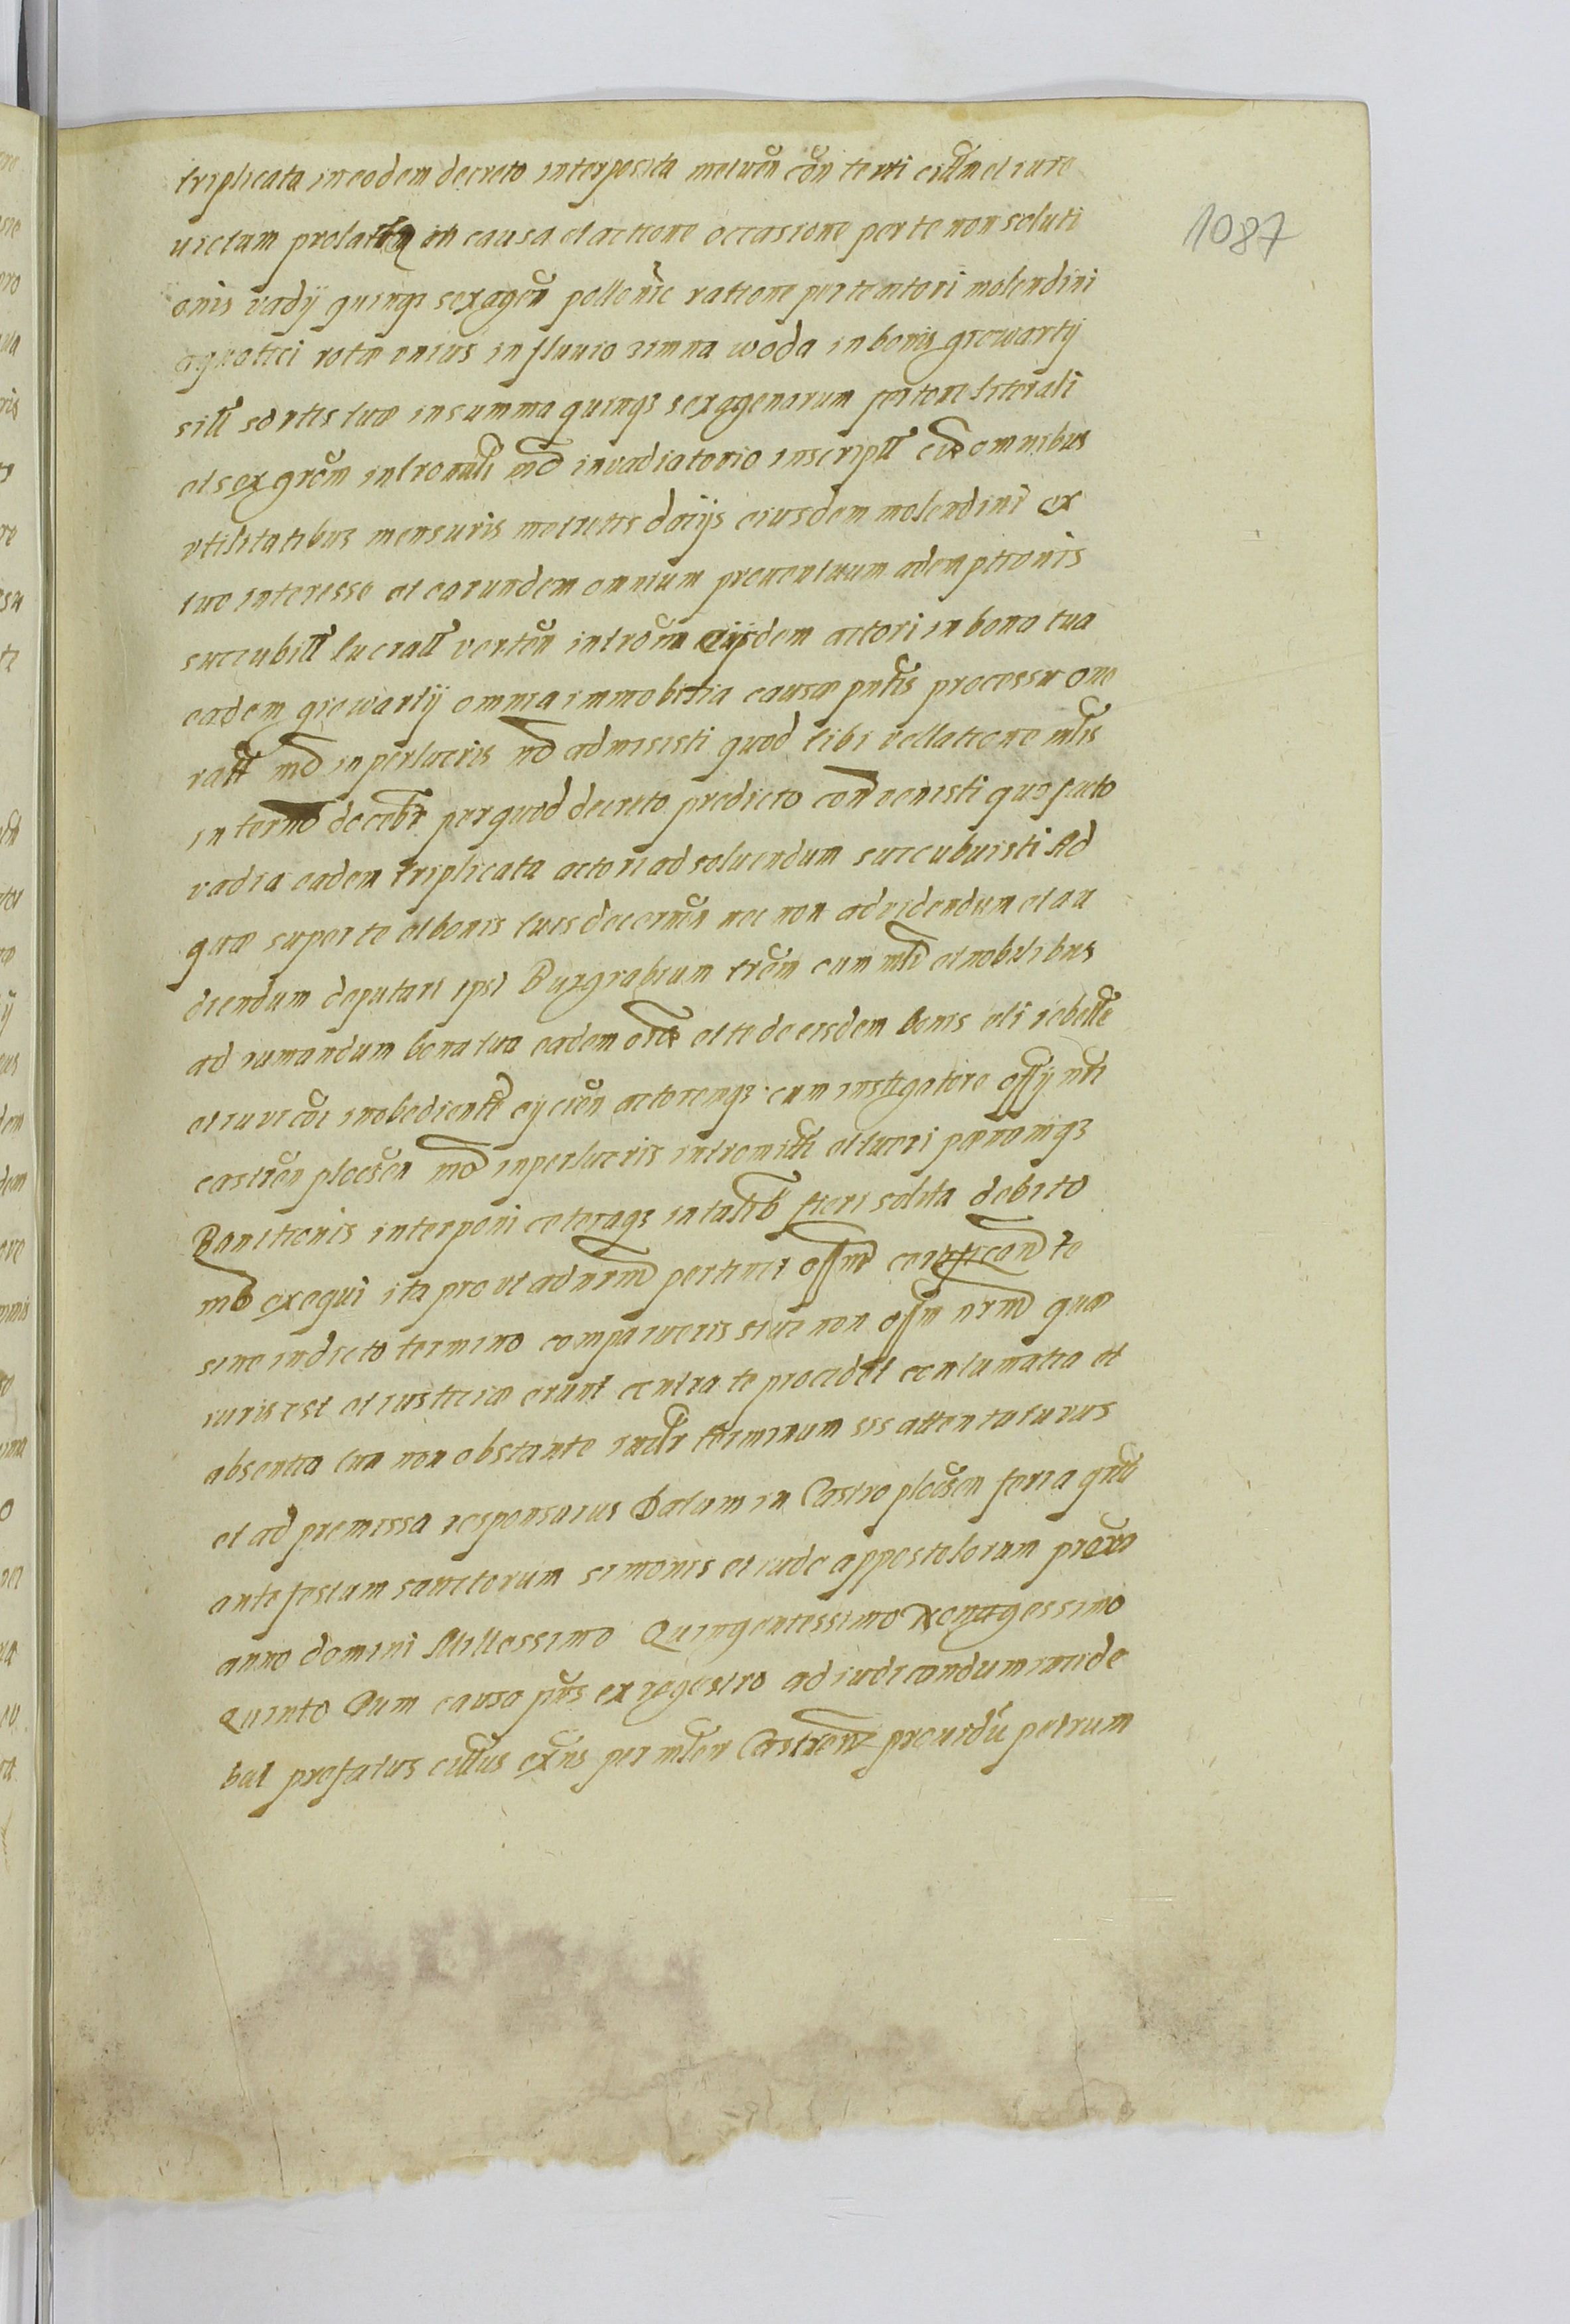 triplicata in eodem decreto interposita meluen con te uti citum et iure
1087
uictum prolatam in causa et actione occasione per te non soluti
onis vadij quinqz sexagen pollonic ratione per te actori molendini
aquatici rotæ unius in fluuio zimna woda in bonis giewartij
sitt sortis tuæ in summa quinqz sexagenarum fertone literali
et sex grom intronuli md invadiatorio inscriptt cum omnibus
vtilitatibus mensuris metretis dacijs eiusdem molendini ex
tuo interesse et earundem omnium prouentuum ademptionis
succubitt lucratt verten introm eijsdem actori in bona tua
eadem giewartij omnia immobilia causæ pntis processu one
ratt md in perlucris nd admisisti quod tibi vellatione mlis
in termo decebr per quod decreto predicto condenisti quo facto
vadia eadem triplicata actori ad soluendum succubuisti Ad
quæ super te et bonis tuis decernen nec non ad videndum et au
diendum deputari ipsi Burgrabium trom cum mli et nobilibus
ad rumandum bona tua eadem oia et te de eisdem bonis eli rebelle
et iuri coi inobediente eycien actoremqz cum instigatore offy nri
castren plocsen md in perlucris intromitti et tueri pænamqz
Banitionis interponi ceteraqz in talib fieri solita debito
md exequi ita prout ad nrm pertinet offm certificand te
siue in dicto termino comparueris siue non offm nrm quæ
iuris est et iusticiæ erunt contra te procedet contumatia et
absentia tua non obstante incir terminum sis attentaturus
et ad premissa responsurus Datum in Castro plocsen feria qnti
ante festum sanctorum simonis et iude appostolorum proxo
anno domini Millessimo Quingentessimo Nonagessimo
Quinto Dum causa pns ex regestro ad iudicandum incide
bat prefatus cittus exns per mlen Castrenz prouidu petrum